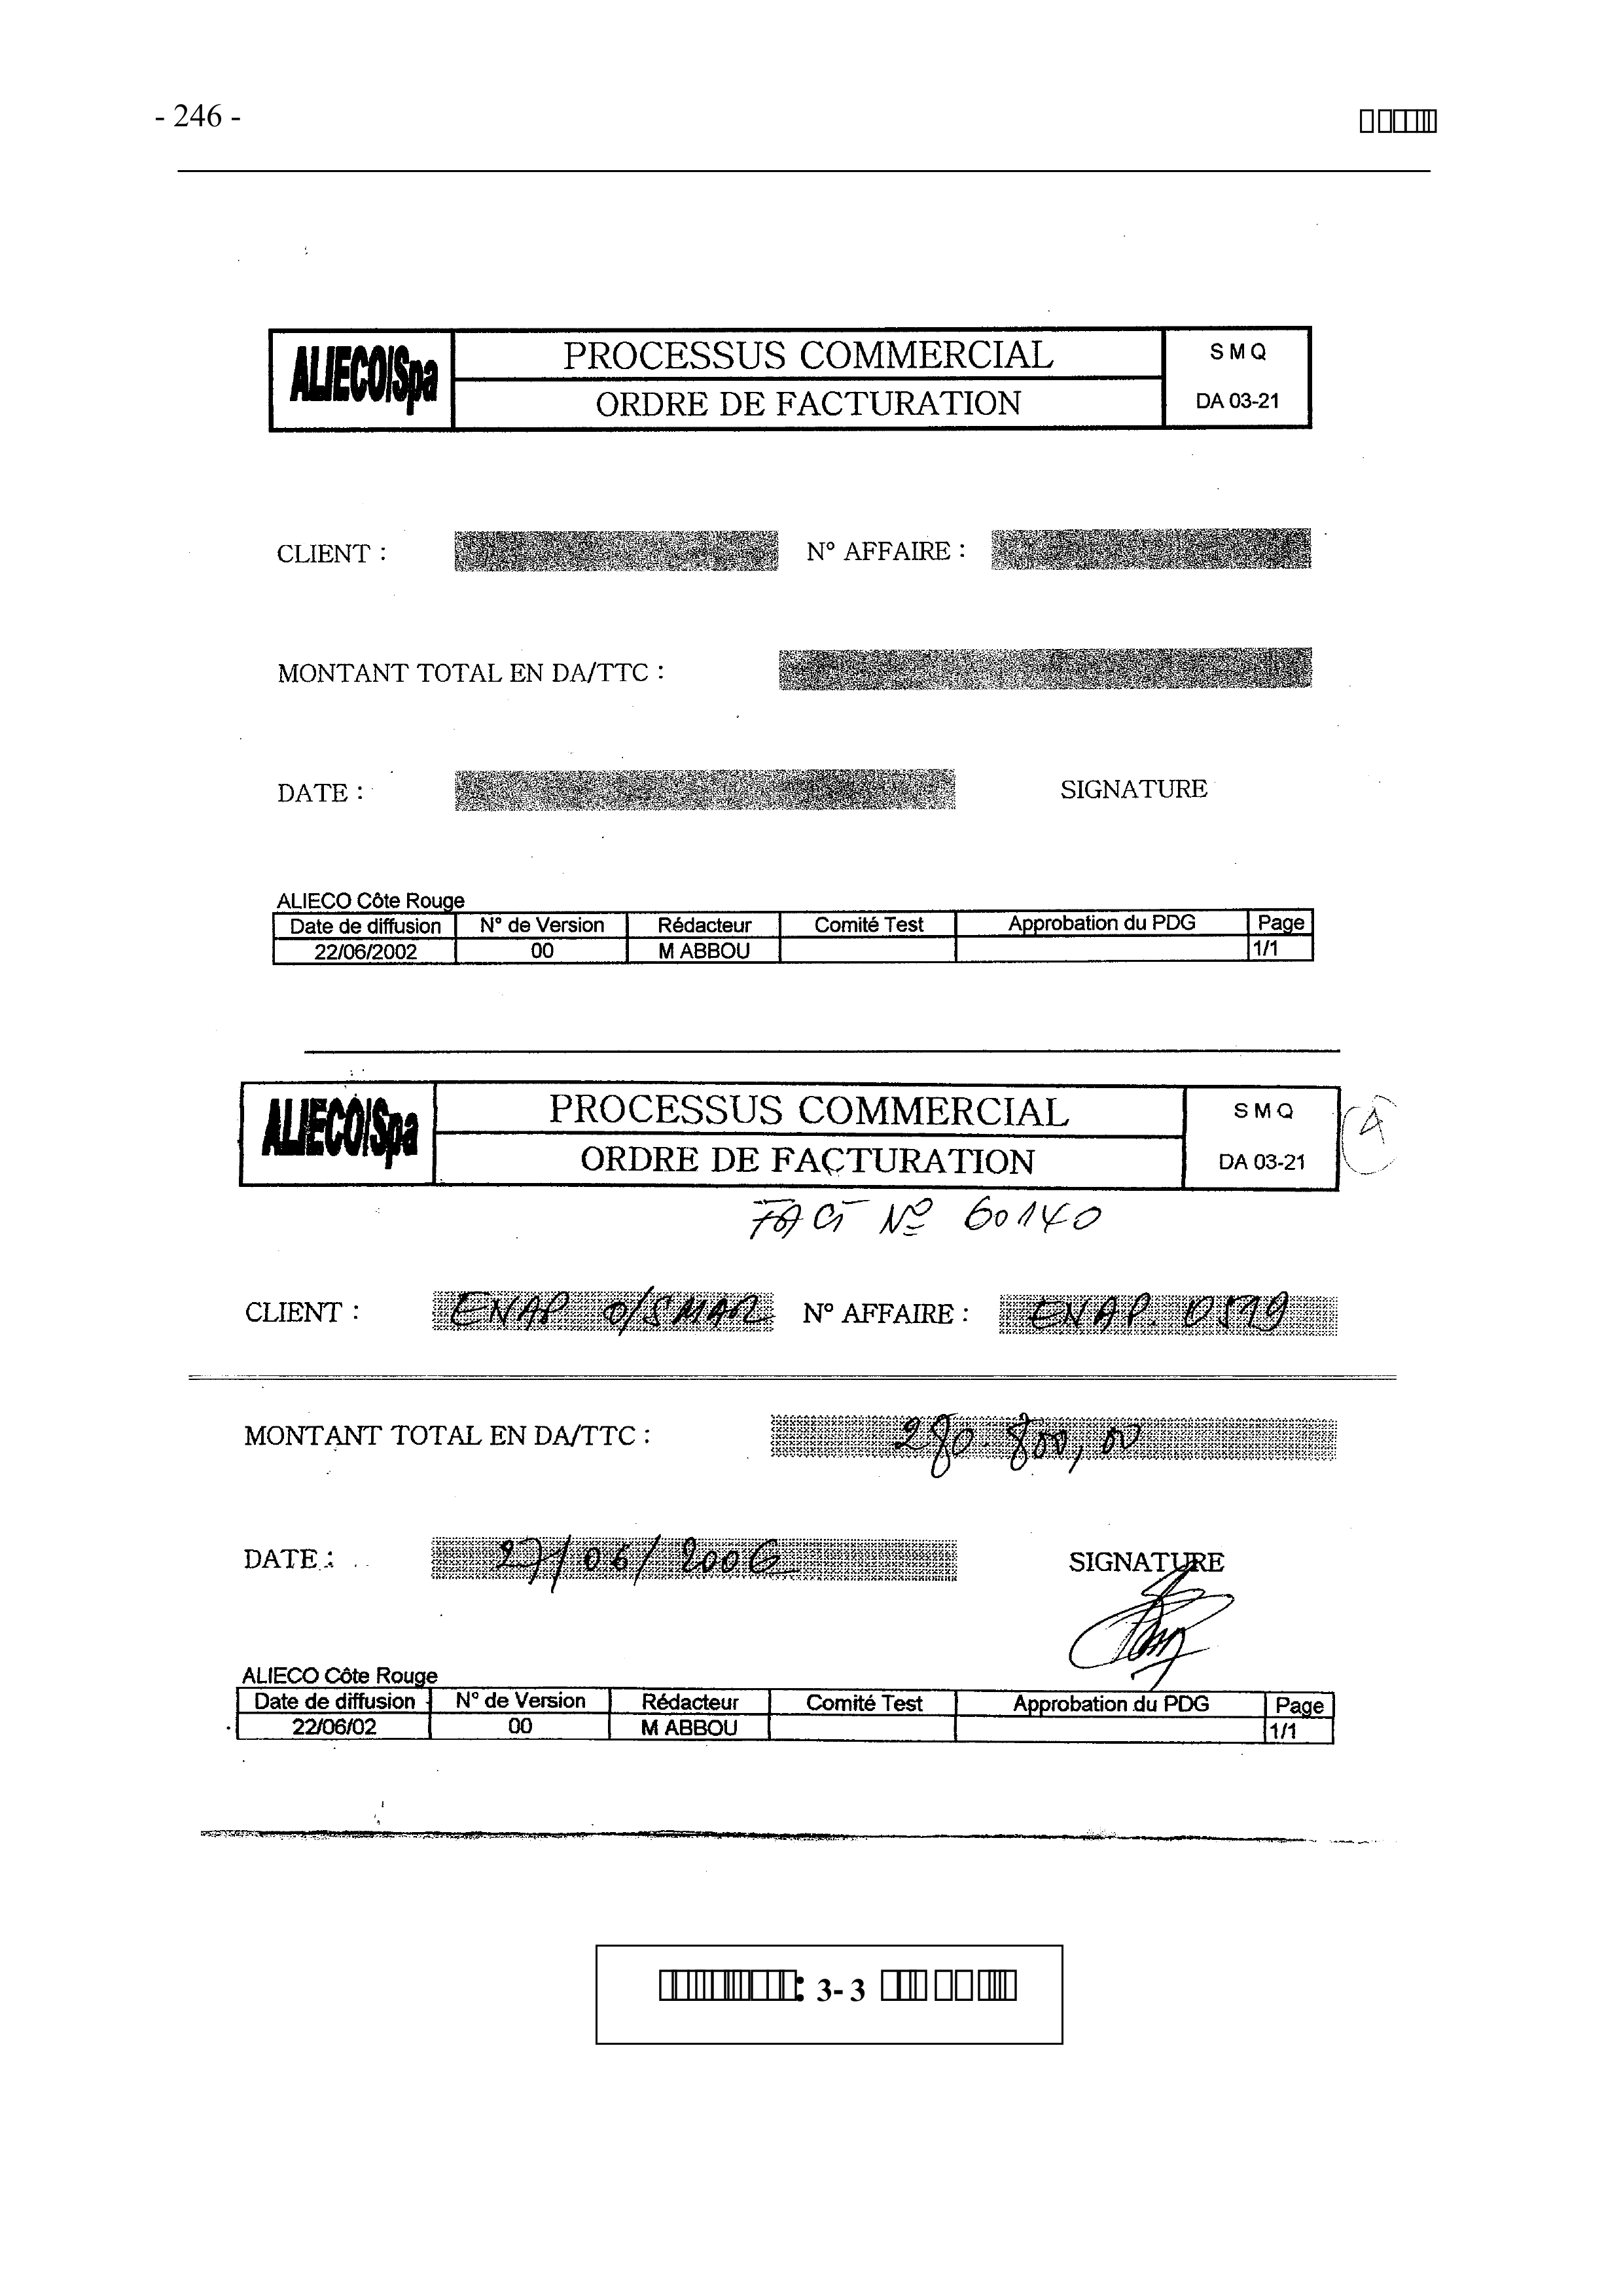 - 246 -
ALIECO/Spa
PROCESSUS COMMERCIAL
ORDRE DE FACTURATION
S M Q
DA 03-21
CLIENT :
N° AFFAIRE :
MONTANT TOTAL EN DA/TTC :
DATE :
SIGNATURE
ALIECO Côte Rouge
Date de diffusion N° de Version Rédacteur Comité Test Approbation du PDG Page
22/06/2002 00 M ABBOU 1/1
ALIECO/Spa
PROCESSUS COMMERCIAL
ORDRE DE FACTURATION
S M Q
DA 03-21
FACT N° 60140
CLIENT : ENAP O/SMAR N° AFFAIRE : ENAP. 0519
MONTANT TOTAL EN DA/TTC : 280.800,00
DATE : 27/06/2006
SIGNATURE
ALIECO Côte Rouge
Date de diffusion N° de Version Rédacteur Comité Test Approbation du PDG Page
22/06/02 00 M ABBOU 1/1
: 3-3